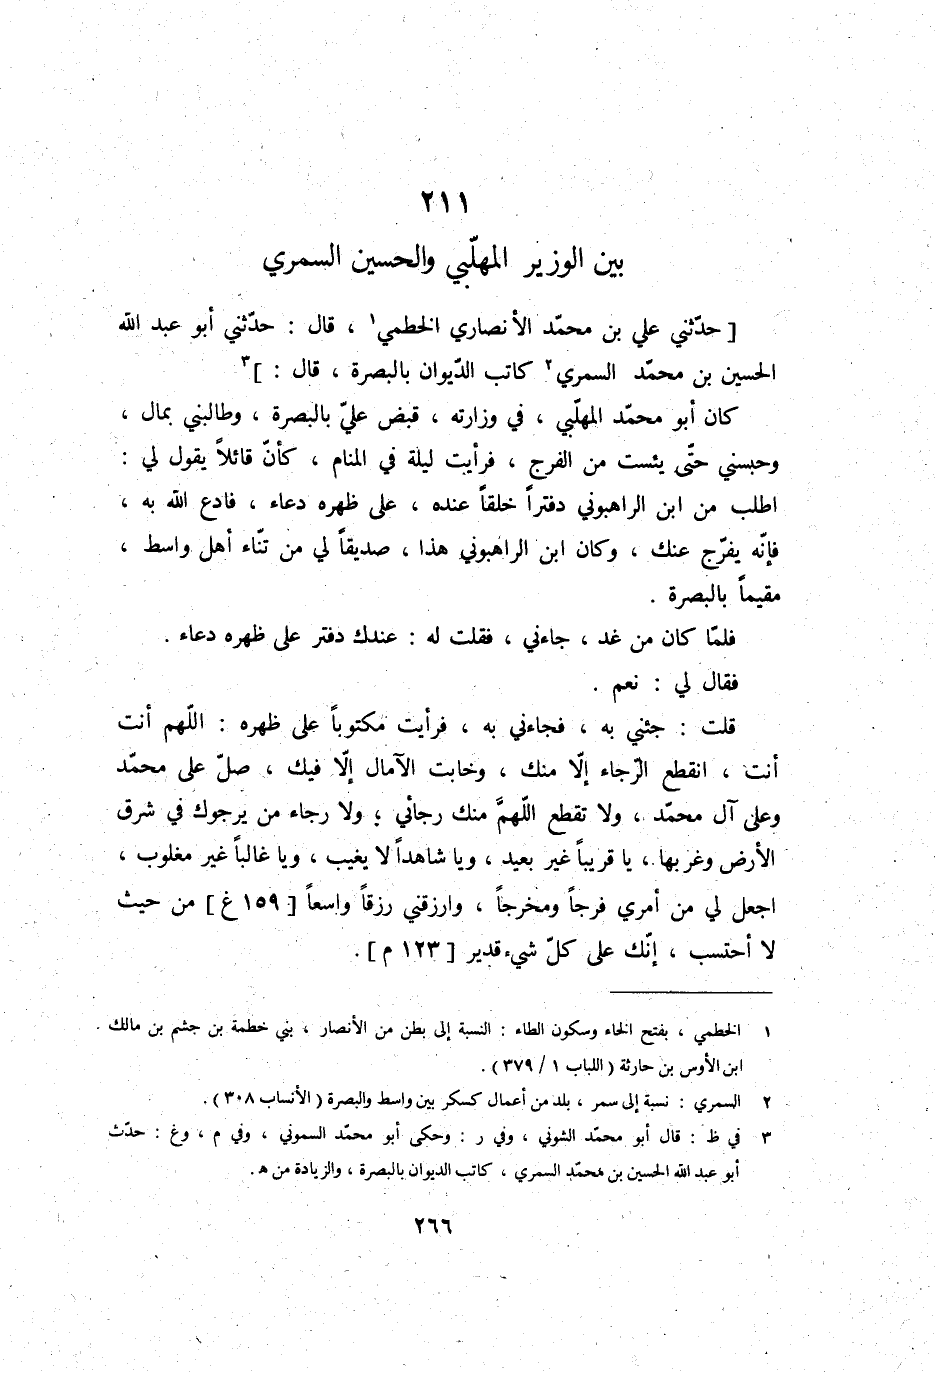 ٢١١
بين الوزير المهلّبي والحسين السمري
[ حدّثني علي بن محمّد الأنصاري الخطمي١ ، قال : حدّثني أبو عبد الله
الحسين بن محمّد السمري٢ كاتب الدّيوان بالبصرة ، قال : ]٣
كان أبو محمّد المهلّبي ، في وزارته ، قبض عليّ بالبصرة ، وطالبني بمال ،
وحبسني حتّى يئست من الفرج ، فرأيت ليلة في المنام ، كأنّ قائلاً يقول لي :
اطلب من ابن الراهبوني دفتراً خلقاً عنده ، على ظهره دعاء ، فادع الله به ،
فإنّه يفرّج عنك ، وكان ابن الراهبوني هذا ، صديقاً لي من تنّاء أهل واسط ،
مقيماً بالبصرة .
فلمّا كان من غد ، جاءني ، فقلت له : عندك دفتر على ظهره دعاء .
فقال لي : نعم .
قلت : جئني به ، فجاءني به ، فرأيت مكتوباً على ظهره : اللّهم أنت
أنت ، انقطع الرّجاء إلّا منك ، وخابت الآمال إلّا فيك ، صلّ على محمّد
وعلى آل محمّد ، ولا تقطع اللّهمَّ منك رجائي ، ولا رجاء من يرجوك في شرق
الأرض وغربها ، يا قريباً غير بعيد ، ويا شاهداً لا يغيب ، ويا غالباً غير مغلوب ،
اجعل لي من أمري فرجاً ومخرجاً ، وارزقني رزقاً واسعاً [ ١٥٩ غ ] من حيث
لا أحتسب ، إنّك على كلّ شيء قدير [ ١٢٣ م ] .
١ الخطمي ، بفتح الخاء وسكون الطاء : النسبة إلى بطن من الأنصار ، بني خطمة بن جشم بن مالك .
ابن الأوس بن حارثة ( اللباب ١ / ٣٧٩ ) .
٢ السمري : نسبة إلى سمر ، بلد من أعمال كسكر بين واسط والبصرة ( الأنساب ٣٠٨ ) .
٣ في ظ : قال أبو محمّد الشوني ، وفي ر : وحكى أبو محمّد السموني ، وفي م ، وغ : حدّث
أبو عبد الله الحسين بن محمّد السمري ، كاتب الديوان بالبصرة ، والزيادة من ه .
٢٦٦